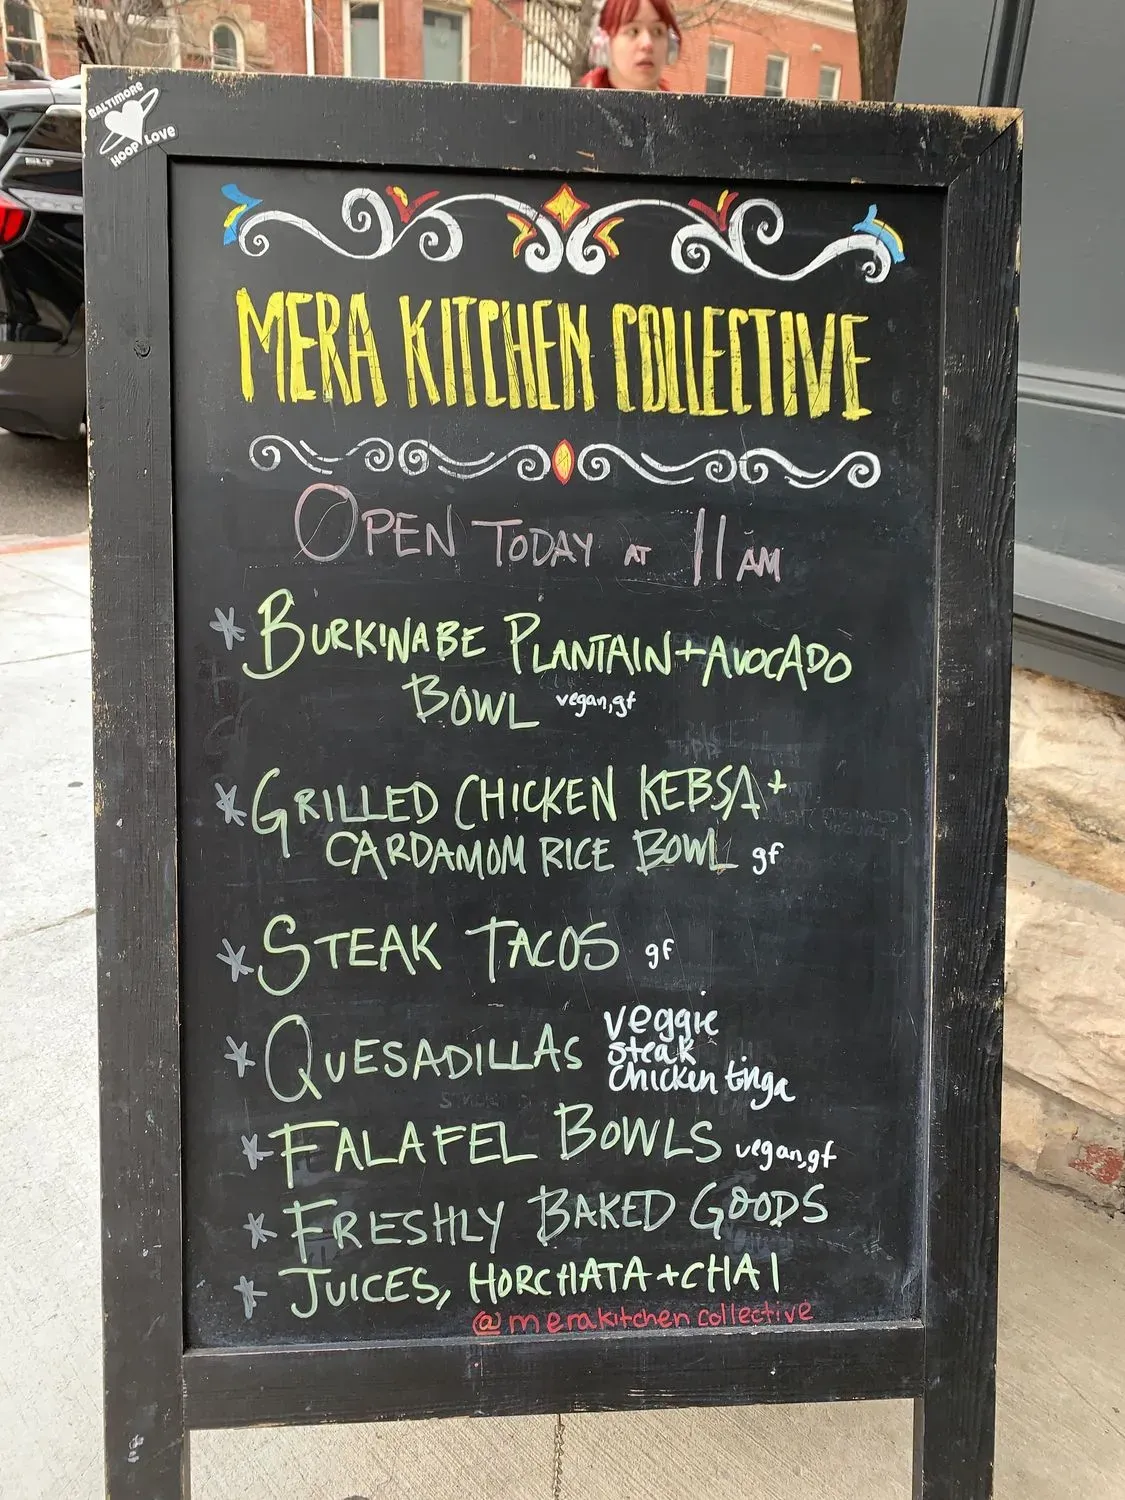 BALTIMORE
HOOP LOVE
MERA KITCHEN COLLECTIVE
OPEN TODAY AT 11 AM
* BURKINABE PLANTAIN + AVOCADO
BOWL vegan, gf
* GRILLED CHICKEN KEBSA +
CARDAMOM RICE BOWL gf
* STEAK TACOS gf
* QUESADILLAS veggie
steak
chicken tinga
* FALAFEL BOWLS vegan, gf
* FRESHLY BAKED GOODS
* JUICES, HORCHATA + CHAI
@merakitchencollective